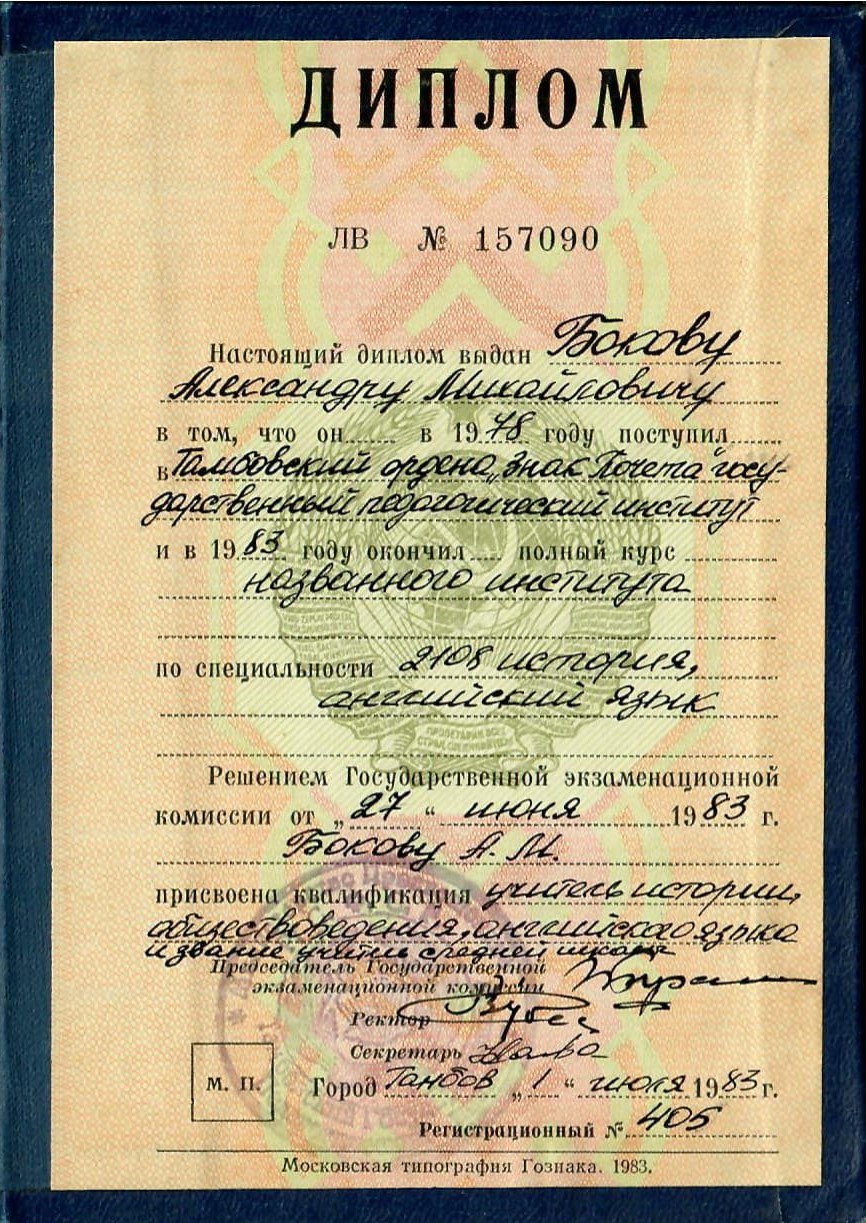 ДИПЛОМ
ЛВ № 157090
Настоящий диплом выдан Бокову
Александру Михайловичу
в том, что он в 1978 году поступил
в Тамбовский ордена „Знак Почета" госу-
дарственный педагогический институт
и в 1983 году окончил полный курс
названного института
по специальности 2108 история,
английский язык
Решением Государственной экзаменационной
комиссии от „27" июня 1983 г.
Бокову А. М.
присвоена квалификация учитель истории,
обществоведения, английского языка
и звание учитель средней школы
Председатель Государственной
экзаменационной комиссии
Ректор
Секретарь
М. П.
Город Тамбов „1" июля 1983 г.
Регистрационный № 405
Московская типография Гознака. 1983.